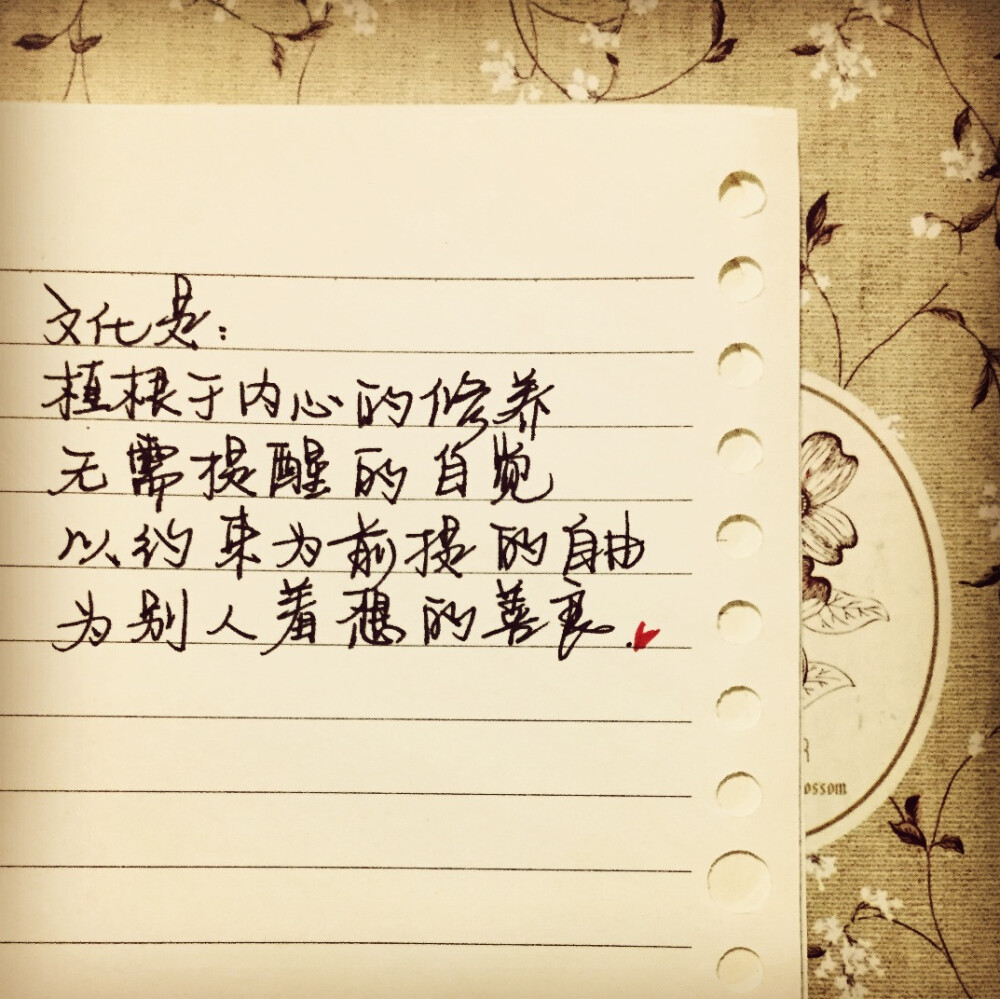 文化是：
植根于内心的修养
无需提醒的自觉
以约束为前提的自由
为别人着想的善良.
ossom